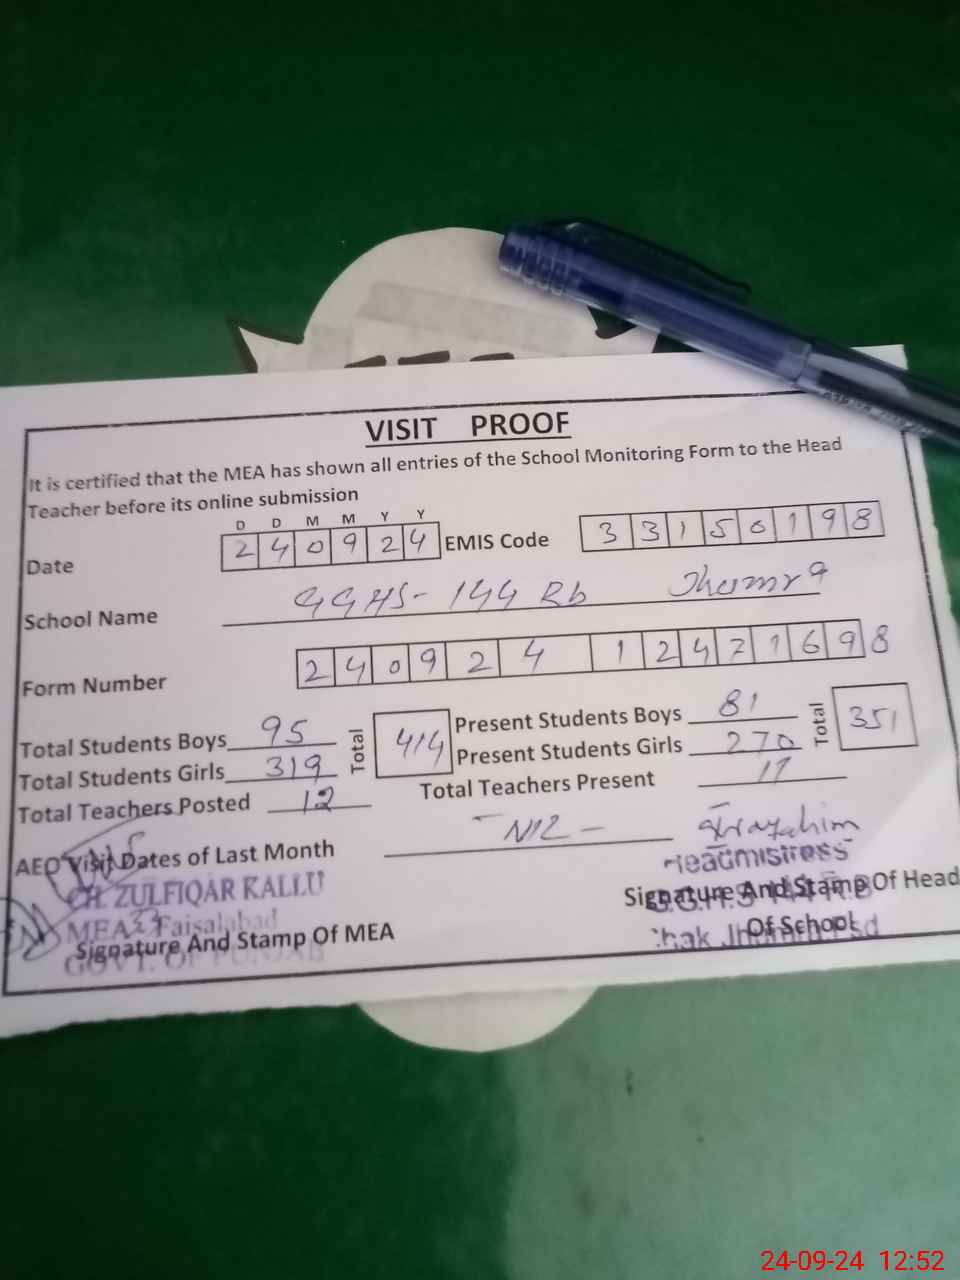 VISIT PROOF
It is certified that the MEA has shown all entries of the School Monitoring Form to the Head
Teacher before its online submission
D D M M Y Y
Date 2 4 0 9 2 4 EMIS Code 3 3 1 5 0 1 9 8
School Name GGHS- 144 Rb Jhumra
Form Number 2 4 0 9 2 4 1 2 4 7 1 6 9 8
Total Students Boys 95 Total 414 Present Students Boys 81 Total 351
Total Students Girls 319 Present Students Girls 270
Total Teachers Posted 12 Total Teachers Present 11
AEO Visit Dates of Last Month - NIL -
Headmistress
CH. ZULFIQAR KALLU
Signature And Stamp Of Head
MEA 33 Faisalabad
Of School
Signature And Stamp Of MEA
Chak Jhumra Fsd
GOVT. OF PUNJAB
24-09-24 12:52